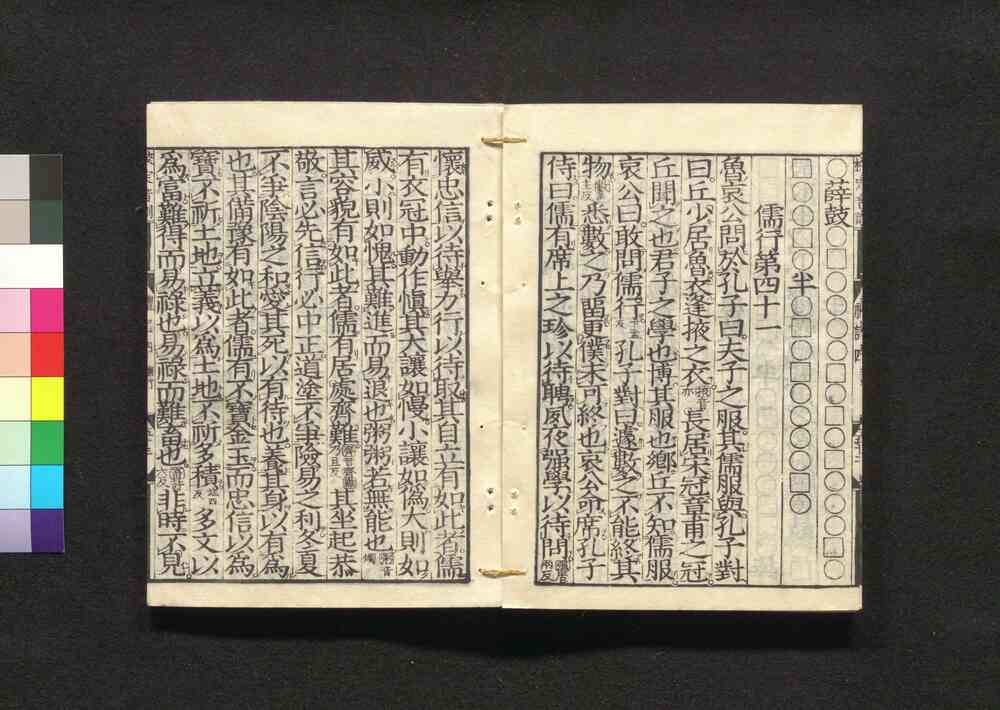 ○薛鼓
半
儒行第四十一
魯哀公問於孔子曰夫子之服其儒服與孔子對
曰丘少居魯衣逢掖之衣掖音亦長居宋冠章甫之冠
丘聞之也君子之學也博其服也鄉丘不知儒服
哀公曰敢問儒行孔子對曰遽數之不能終其
物悉數之乃畱更僕未可終也哀公命席孔子
侍曰儒有席上之珍以待聘夙夜强學以待問强居兩反
懷忠信以待擧力行以待取其自立有如此者儒
有衣冠中動作愼其大讓如慢小讓如僞大則如
威小則如愧其難進而易退也粥粥若無能也粥音燭
其容貌有如此者儒有居處齊難其坐起恭
敬言必先信行必中正道塗不爭險易之利冬夏
不爭陰陽之和愛其死以有待也養其身以有爲
也其備豫有如此者儒有不寶金玉而忠信以爲
寶不祈土地立義以爲土地不祈多積多文以
爲富難得而易祿也易祿而難畜也非時不見